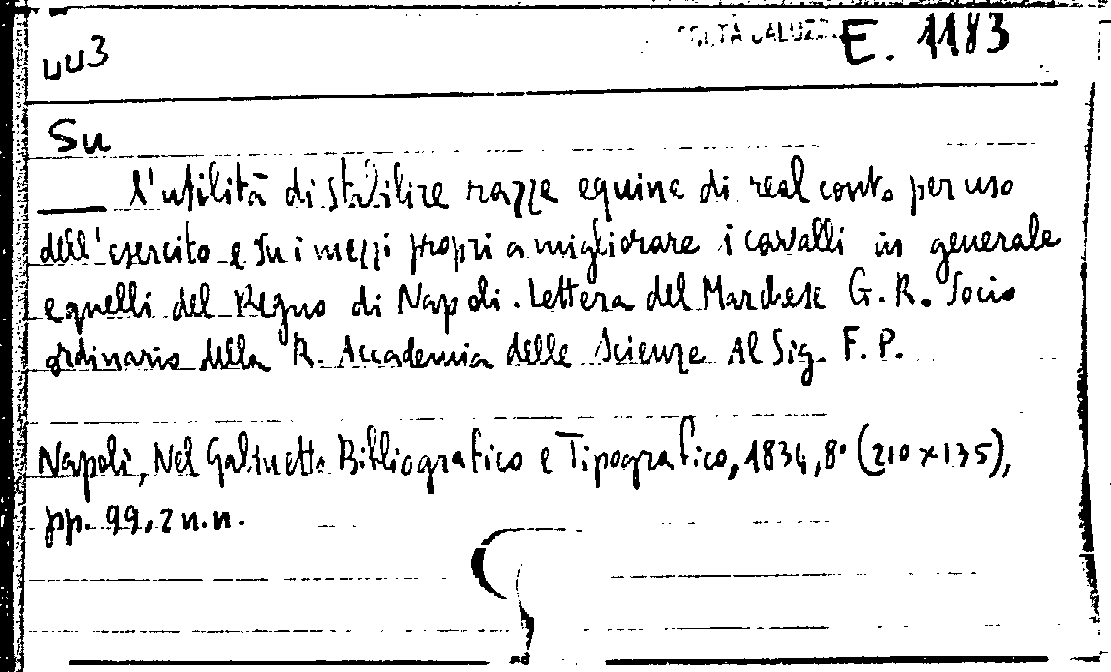 443 E. 1183
Su
l'utilità di stabilire razze equine di real conto per uso
dell'esercito e su i mezzi propri a migliorare i cavalli in generale
e quelli del Regno di Napoli. Lettera del Marchese G. R. Socio
ordinario della R. Accademia delle Scienze Al Sig. F. P.
Napoli, Nel Gabinetto Bibliografico e Tipografico, 1834, 8° (210 x 135),
pp. 99, 2 n.n.